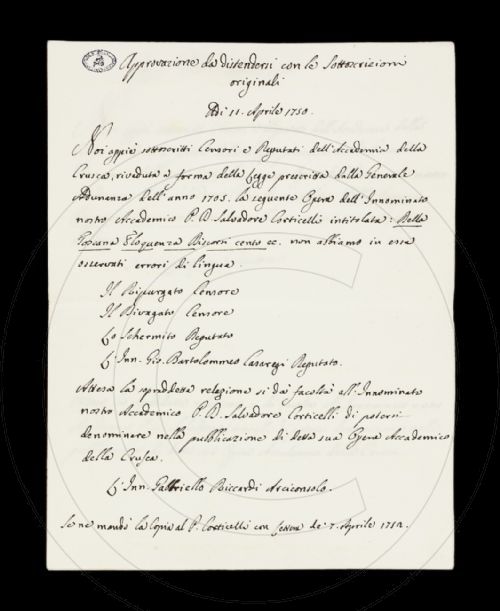 Approvazione da distendersi con le Sottoscrizioni
originali
Adi 11. Aprile 1750.
Noi appiè sottoscritti Censori e Deputati dell'Accademia della
Crusca, riveduta a forma della Legge prescritta dalla Generale
Adunanza dell'anno 1705. la seguente Opera dell'Innominato
nostro Accademico P. D. Salvadore Corticelli intitolata: Della
Toscana Eloquenza Discorsi cento ec. non abbiamo in essa
osservati errori di lingua.
Il Ripurgato Censore
Il Divagato Censore
Lo Schermito Deputato
L'Inn. Gio. Bartolommeo Casaregi Deputato.
Attesa la sopraddetta relazione si dà facoltà all'Innominato
nostro Accademico P. D. Salvadore Corticelli di potersi
denominare nella pubblicazione di detta sua Opera Accademico
della Crusca.
L'Inn. Gabbriello Riccardi Arciconsolo.
Se ne mandò la Copia al P. Corticelli con Lettera de' 7. Aprile